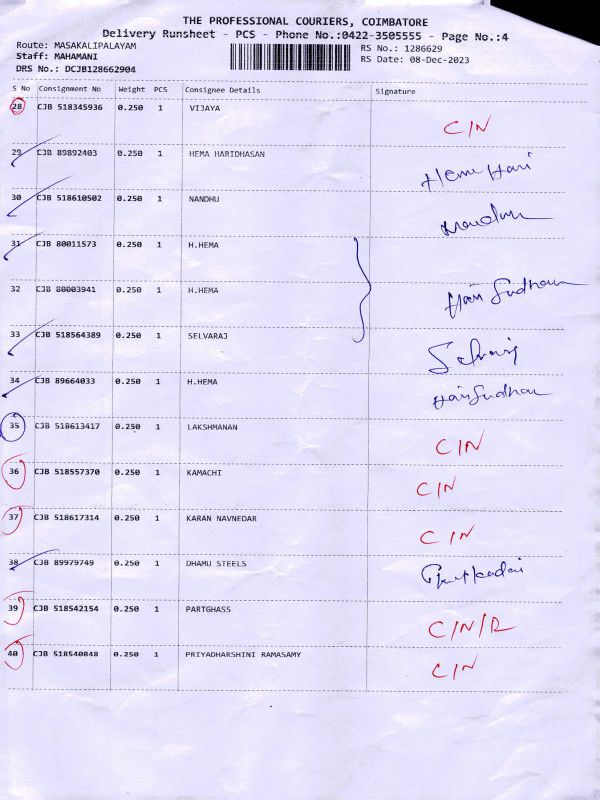 THE PROFESSIONAL COURIERS, COIMBATORE
Delivery Runsheet - PCS - Phone No.:0422-3505555 - Page No.:4
Route: MASAKALIPALAYAM
Staff: MAHAMANI
DRS No.: DCJB128662904
RS No.: 1286629
RS Date: 08-Dec-2023
S No Consignment No Weight PCS Consignee Details Signature
28 CJB 518345936 0.250 1 VIJAYA C/N
29 CJB 89892403 0.250 1 HEMA HARIDHASAN Hema Hari
30 CJB 518610502 0.250 1 NANDHU Nandhu
31 CJB 80011573 0.250 1 H.HEMA
32 CJB 80003941 0.250 1 H.HEMA Hari Sudhan
33 CJB 518564389 0.250 1 SELVARAJ Selvaraj
34 CJB 89664033 0.250 1 H.HEMA Hari Sudhan
35 CJB 518613417 0.250 1 LAKSHMANAN C/N
36 CJB 518557370 0.250 1 KAMACHI C/N
37 CJB 518617314 0.250 1 KARAN NAVNEDAR C/N
38 CJB 89979749 0.250 1 DHAMU STEELS
39 CJB 518542154 0.250 1 PARTGHASS C/N/R
40 CJB 518540848 0.250 1 PRIYADHARSHINI RAMASAMY C/N